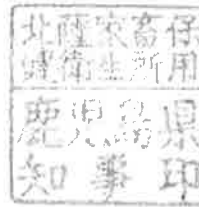 北薩家畜保
健衛生所用
鹿児島県
知事印